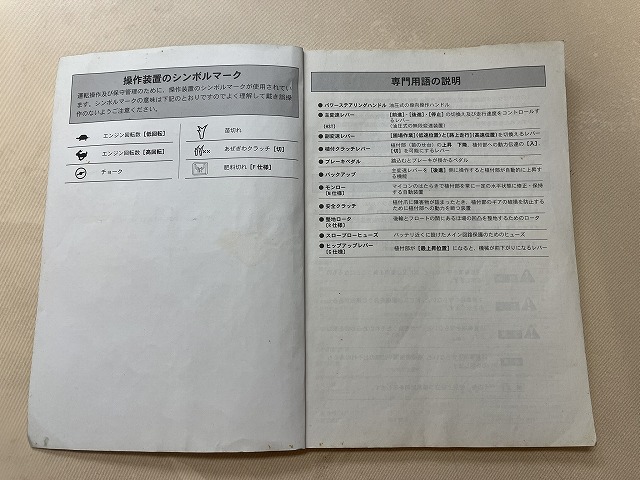 操作装置のシンボルマーク
運転操作及び保守管理のために、操作装置のシンボルマークが使用されてい
ます。シンボルマークの意味は下記のとおりですのでよく理解して戴き誤操
作のないようご注意ください。
エンジン回転数【低回転】
エンジン回転数【高回転】
チョーク
苗切れ
あぜぎわクラッチ【切】
肥料切れ【F仕様】
専門用語の説明
●パワーステアリングハンドル 油圧式の操向操作ハンドル
●主変速レバー 【前進】・【後進】・【停止】の切換え及び走行速度をコントロールす
るレバー
(HST) (油圧式の無段変速装置)
●副変速レバー 【圃場作業】(低速位置)と【路上走行】(高速位置)を切換えるレバー
●植付クラッチレバー 植付部(苗のせ台)の上昇、下降、植付部への動力伝達の【入】、
【切】を可能にするレバー
●ブレーキペダル 踏込むとブレーキが掛かるペダル
●バックアップ 主変速レバーを【後進】側に操作すると植付部が自動的に上昇す
る機能
●モンロー マイコンのはたらきで植付部を常に一定の水平状態に修正・保持
【N仕様】 する自動装置
●安全クラッチ 植付爪に障害物が詰まったとき、植付部のギアの破損を防止する
ために植付部への動力を断つ装置
●整地ロータ 後輪とフロートの間にあるほ場の凹凸を整地するためのロータ
【R仕様】
●スローブローヒューズ バッテリ近くに設けたメイン回路保護のためのヒューズ
●ヒップアップレバー 植付部が【最上昇位置】になると、機械が前下がりになるレバー
【G仕様】